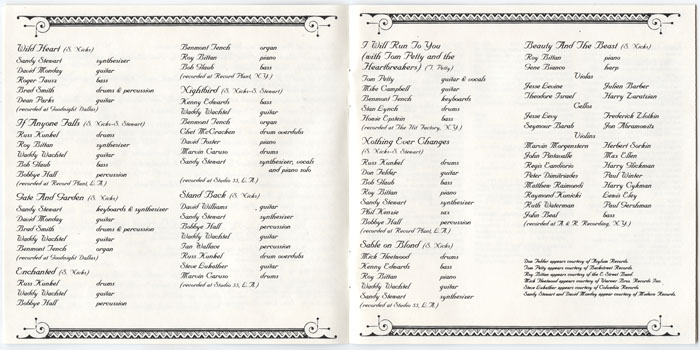 Wild Heart (S. Nicks)
Sandy Stewart synthesizer
David Monday guitar
Roger Tausz bass
Brad Smith drums & percussion
Dean Parks guitar
(recorded at Goodnight Dallas)
If Anyone Falls (S. Nicks-S. Stewart)
Russ Kunkel drums
Roy Bittan synthesizer
Waddy Wachtel guitar
Bob Glaub bass
Bobbye Hall percussion
(recorded at Record Plant, L.A.)
Gate And Garden (S. Nicks)
Sandy Stewart keyboards & synthesizer
David Monday guitar
Brad Smith drums & percussion
Waddy Wachtel guitar
Benmont Tench organ
(recorded at Goodnight Dallas)
Enchanted (S. Nicks)
Russ Kunkel drums
Waddy Wachtel guitar
Bobbye Hall percussion
Benmont Tench organ
Roy Bittan piano
Bob Glaub bass
(recorded at Record Plant, N.Y.)
Nightbird (S. Nicks-S. Stewart)
Kenny Edwards bass
Waddy Wachtel guitar
Benmont Tench organ
Chet McCracken drum overdubs
David Foster piano
Marvin Caruso drums
Sandy Stewart synthesizer, vocals
and piano solo
(recorded at Studio 55, L.A.)
Stand Back (S. Nicks)
David Williams guitar
Sandy Stewart synthesizer
Bobbye Hall percussion
Waddy Wachtel guitar
Ian Wallace percussion
Russ Kunkel drum overdubs
Steve Lukather guitar
Marvin Caruso drums
(recorded at Studio 55, L.A.)
I Will Run To You
(with Tom Petty and the
Heartbreakers) (T. Petty)
Tom Petty guitar & vocals
Mike Campbell guitar
Benmont Tench keyboards
Stan Lynch drums
Howie Epstein bass
(recorded at The Hit Factory, N.Y.)
Nothing Ever Changes
(S. Nicks-S. Stewart)
Russ Kunkel drums
Don Felder guitar
Bob Glaub bass
Roy Bittan piano
Sandy Stewart synthesizer
Phil Kenzie sax
Bobbye Hall percussion
(recorded at Record Plant, L.A.)
Sable on Blond (S. Nicks)
Mick Fleetwood drums
Kenny Edwards bass
Roy Bittan piano
Waddy Wachtel guitar
Sandy Stewart synthesizer
(recorded at Studio 55, L.A.)
Beauty And The Beast (S. Nicks)
Roy Bittan piano
Gene Bianco harp
Violas
Jesse Levine Julien Barber
Theodore Israel Harry Zaratzian
Cellos
Jesse Levy Frederick Zlotkin
Seymour Barab Jon Abramowitz
Violins
Marvin Morgenstern Herbert Sorkin
John Pintavalle Max Ellen
Regis Iandiorio Harry Glickman
Peter Dimitriades Paul Winter
Matthew Raimondi Harry Cykman
Raymond Kunicki Lewis Eley
Ruth Waterman Paul Gershman
John Beal bass
(recorded at A & R Recording, N.Y.)
Don Felder appears courtesy of Asylum Records.
Tom Petty appears courtesy of Backstreet Records.
Roy Bittan appears courtesy of the E Street Band.
Mick Fleetwood appears courtesy of Warner Bros. Records Inc.
Steve Lukather appears courtesy of Columbia Records.
Sandy Stewart and David Monday appear courtesy of Modern Records.